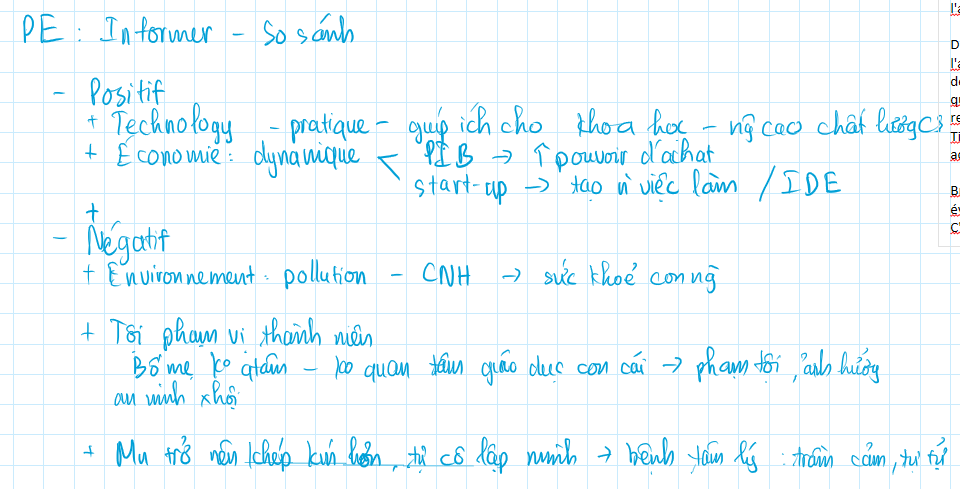 PE : Informer - So sánh
- Positif
+ Technology - pratique - giúp ích cho khoa học - ng cao chất lượng CS
+ Économie : dynamique < PIB → ↑ pouvoir d'achat
start-up → tạo việc làm / IDE
+
- Négatif
+ Environnement : pollution - CNH → sức khoẻ con ng
+ Tội phạm vị thành niên
Bố mẹ ko qtâm - ko quan tâm giáo dục con cái → phạm tội, ảnh hưởng
an ninh xhội
+ Mn trở nên khép kín hơn, tự cô lập mình → bệnh tâm lý : trầm cảm, tự tử
l'a
D
l'a
de
qu
re
Ti
ac
B
év
C'